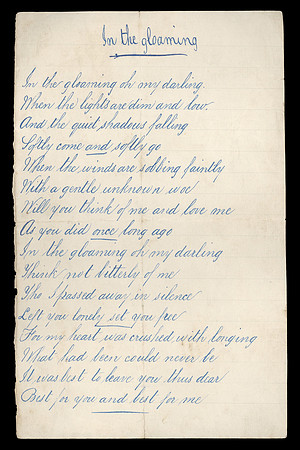 In the gloaming
In the gloaming oh my darling.
When the lights are dim and low.
And the quit shadows falling
Softly come and softly go
When the winds are sobbing faintly
With a gentle unknown woe
Will you think of me and love me
As you did once long ago
In the gloaming oh my darling
Think not bitterly of me
Tho I passed away in silence
Left you lonely set you free
For my heart was crushed with longing
What had been could never be
It was best to leave you thus dear
Best for you and best for me